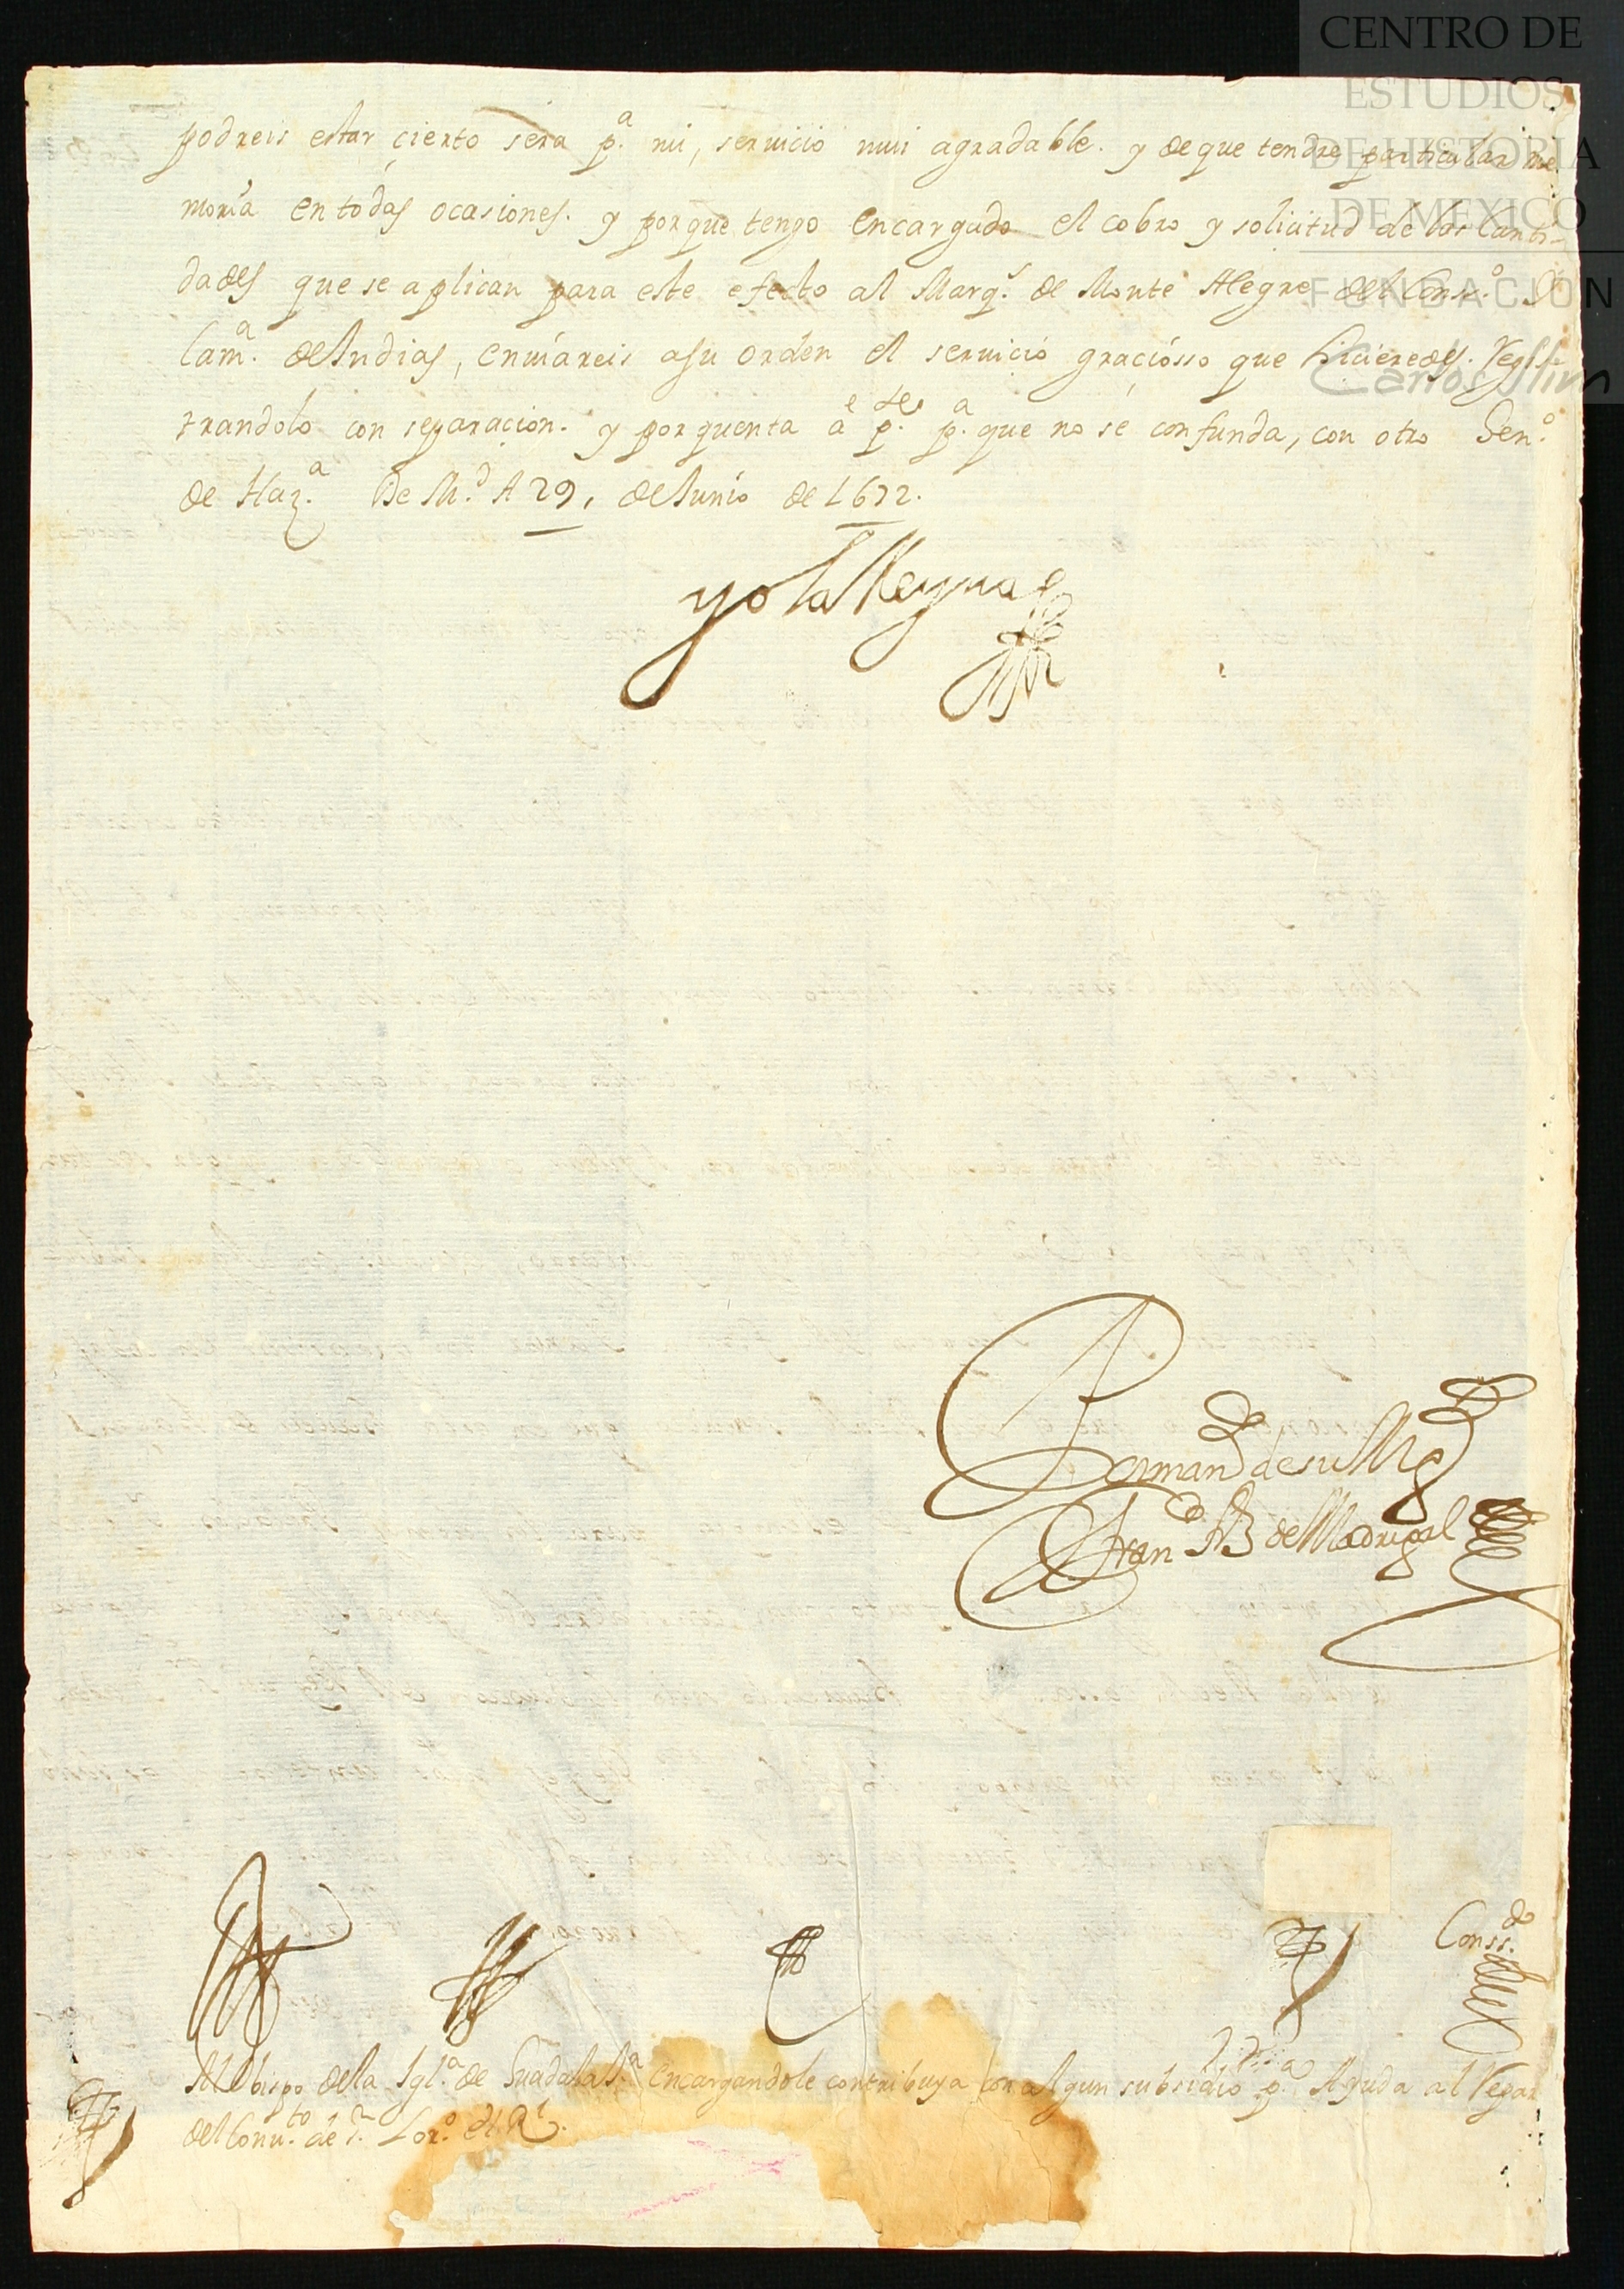 CENTRO DE
ESTUDIOS
DE HISTORIA
DE MEXICO
FUNDACION
Carlos Slim
podreis estar cierto sera p.ª mi, seruicio mui agradable. y de que tendre particular me
moria en todas ocasiones. y porque tengo encargado el cobro y solicitud de las Canti-
dades que se aplican para este efecto al Marq.s de Monte Alegre del Cons.º y
Cam.ª de Indias, enuiareis a su orden el seruicio graciósso que hicieredes. regis-
trandolo con separacion. y por quenta a p.te p.ª que no se confunda, con otro Gen.º
de Haz.ª De M.d A 29, de Junio de 1672.
yo la Reyna
Por mand.do de su Mg.d
Fran.co Frz de Madrigal
Conss.do
Al Obispo de la Igl.ª de Guadalax.ª encargandole contribuya con algun subsidio p.ª Ayuda al Repar
del Conu.to de S.n Lor.º el R.l